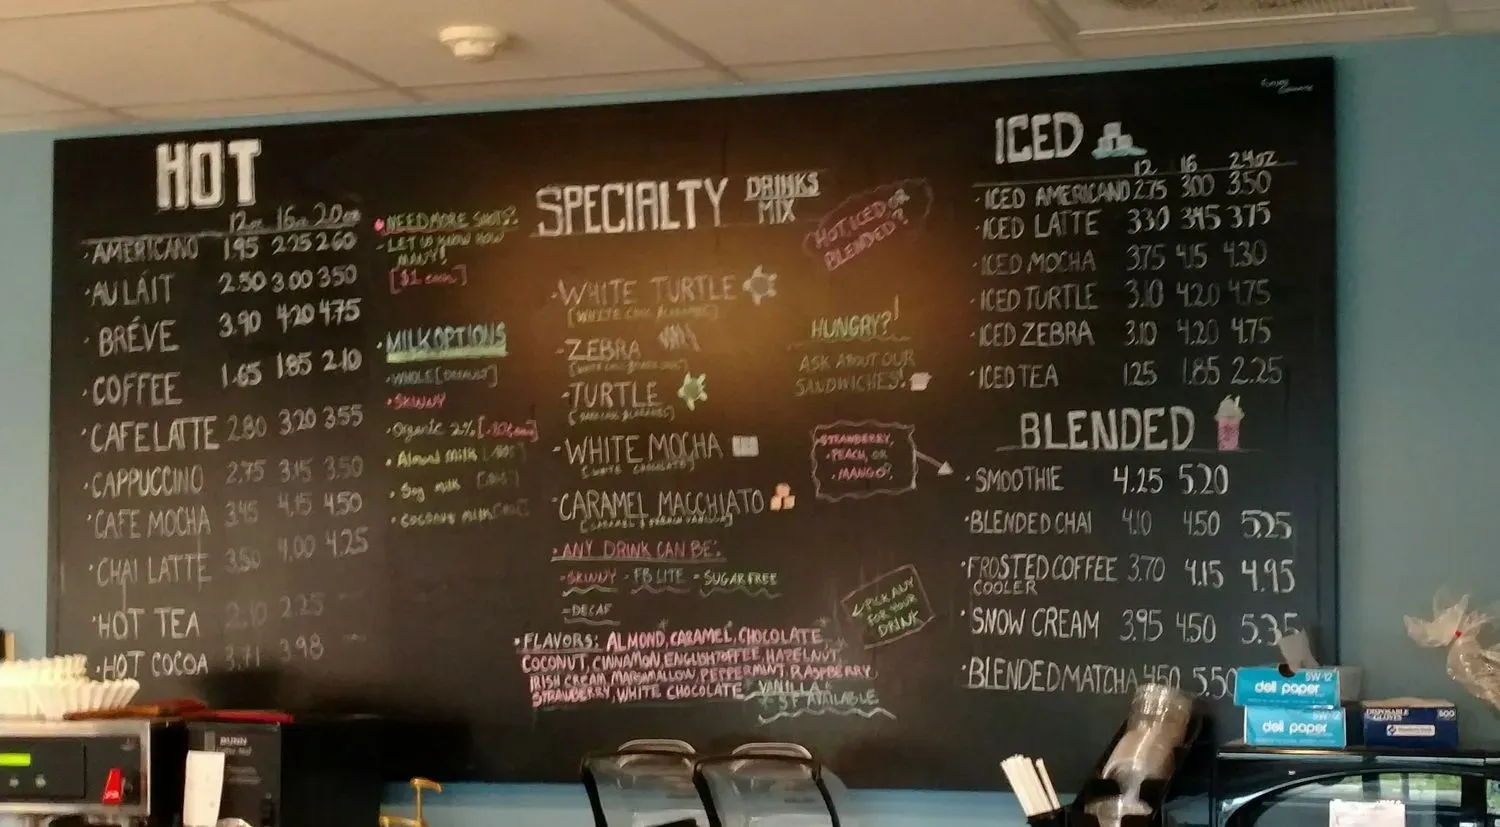 HOT
12oz 16oz 20oz
· AMERICANO 1.95 2.25 2.60
· AU LÁIT 2.50 3.00 3.50
· BRÉVE 3.90 4.20 4.75
· COFFEE 1.65 1.85 2.10
· CAFE LATTE 2.80 3.20 3.55
· CAPPUCCINO 2.75 3.15 3.50
· CAFE MOCHA 3.45 4.15 4.50
· CHAI LATTE 3.50 4.00 4.25
· HOT TEA 2.10 2.25
· HOT COCOA 3.71 3.98
· NEED MORE SHOTS?
- LET US KNOW HOW
MANY!
[$1 each]
· MILK OPTIONS
· WHOLE [DEFAULT]
· SKINNY
· Organic 2%
· Almond Milk
· Soy milk
· Coconut Milk
SPECIALTY DRINKS
MIX
HOT, ICED OR
BLENDED?
· WHITE TURTLE
[WHITE CHOC & CARAMEL]
· ZEBRA
· TURTLE
· WHITE MOCHA
[WHITE CHOCOLATE]
· CARAMEL MACCHIATO
[CARAMEL & FRENCH VANILLA]
HUNGRY?!
ASK ABOUT OUR
SANDWICHES!
· STRAWBERRY,
· PEACH, OR
· MANGO?
· ANY DRINK CAN BE:
- SKINNY - FB LITE - SUGAR FREE
- DECAF
PICK ANY
FOR YOUR
DRINK
· FLAVORS: ALMOND, CARAMEL, CHOCOLATE
COCONUT, CINNAMON, ENGLISH TOFFEE, HAZELNUT,
IRISH CREAM, MARSHMALLOW, PEPPERMINT, RASPBERRY
STRAWBERRY, WHITE CHOCOLATE, VANILLA
* SF AVAILABLE
ICED
12 16 24oz
· ICED AMERICANO 2.75 3.00 3.50
· ICED LATTE 3.30 3.45 3.75
· ICED MOCHA 3.75 4.15 4.30
· ICED TURTLE 3.10 4.20 4.75
· ICED ZEBRA 3.10 4.20 4.75
· ICED TEA 1.25 1.85 2.25
BLENDED
· SMOOTHIE 4.25 5.20
· BLENDED CHAI 4.10 4.50 5.25
· FROSTED COFFEE 3.70 4.15 4.95
COOLER
· SNOW CREAM 3.95 4.50 5.35
· BLENDED MATCHA 4.50 5.50
BUNN
SW-12
deli paper
SW-12
deli paper
DISPOSABLE
GLOVES
500